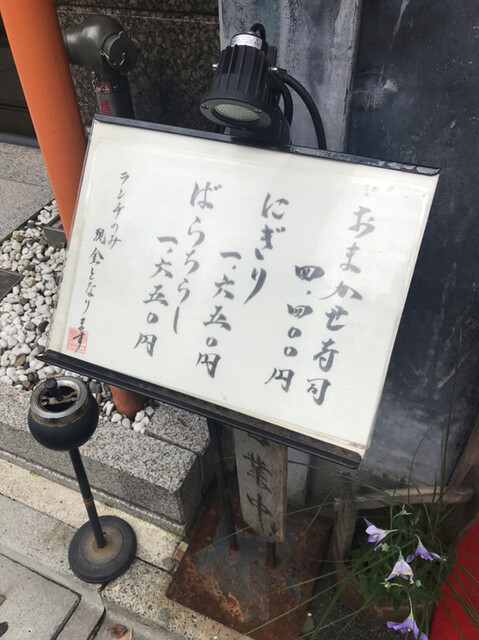 おまかせ寿司
四.四〇〇円
にぎり
一.六五〇円
ばらちらし
一.六五〇円
ランチのみ
現金となります
業中